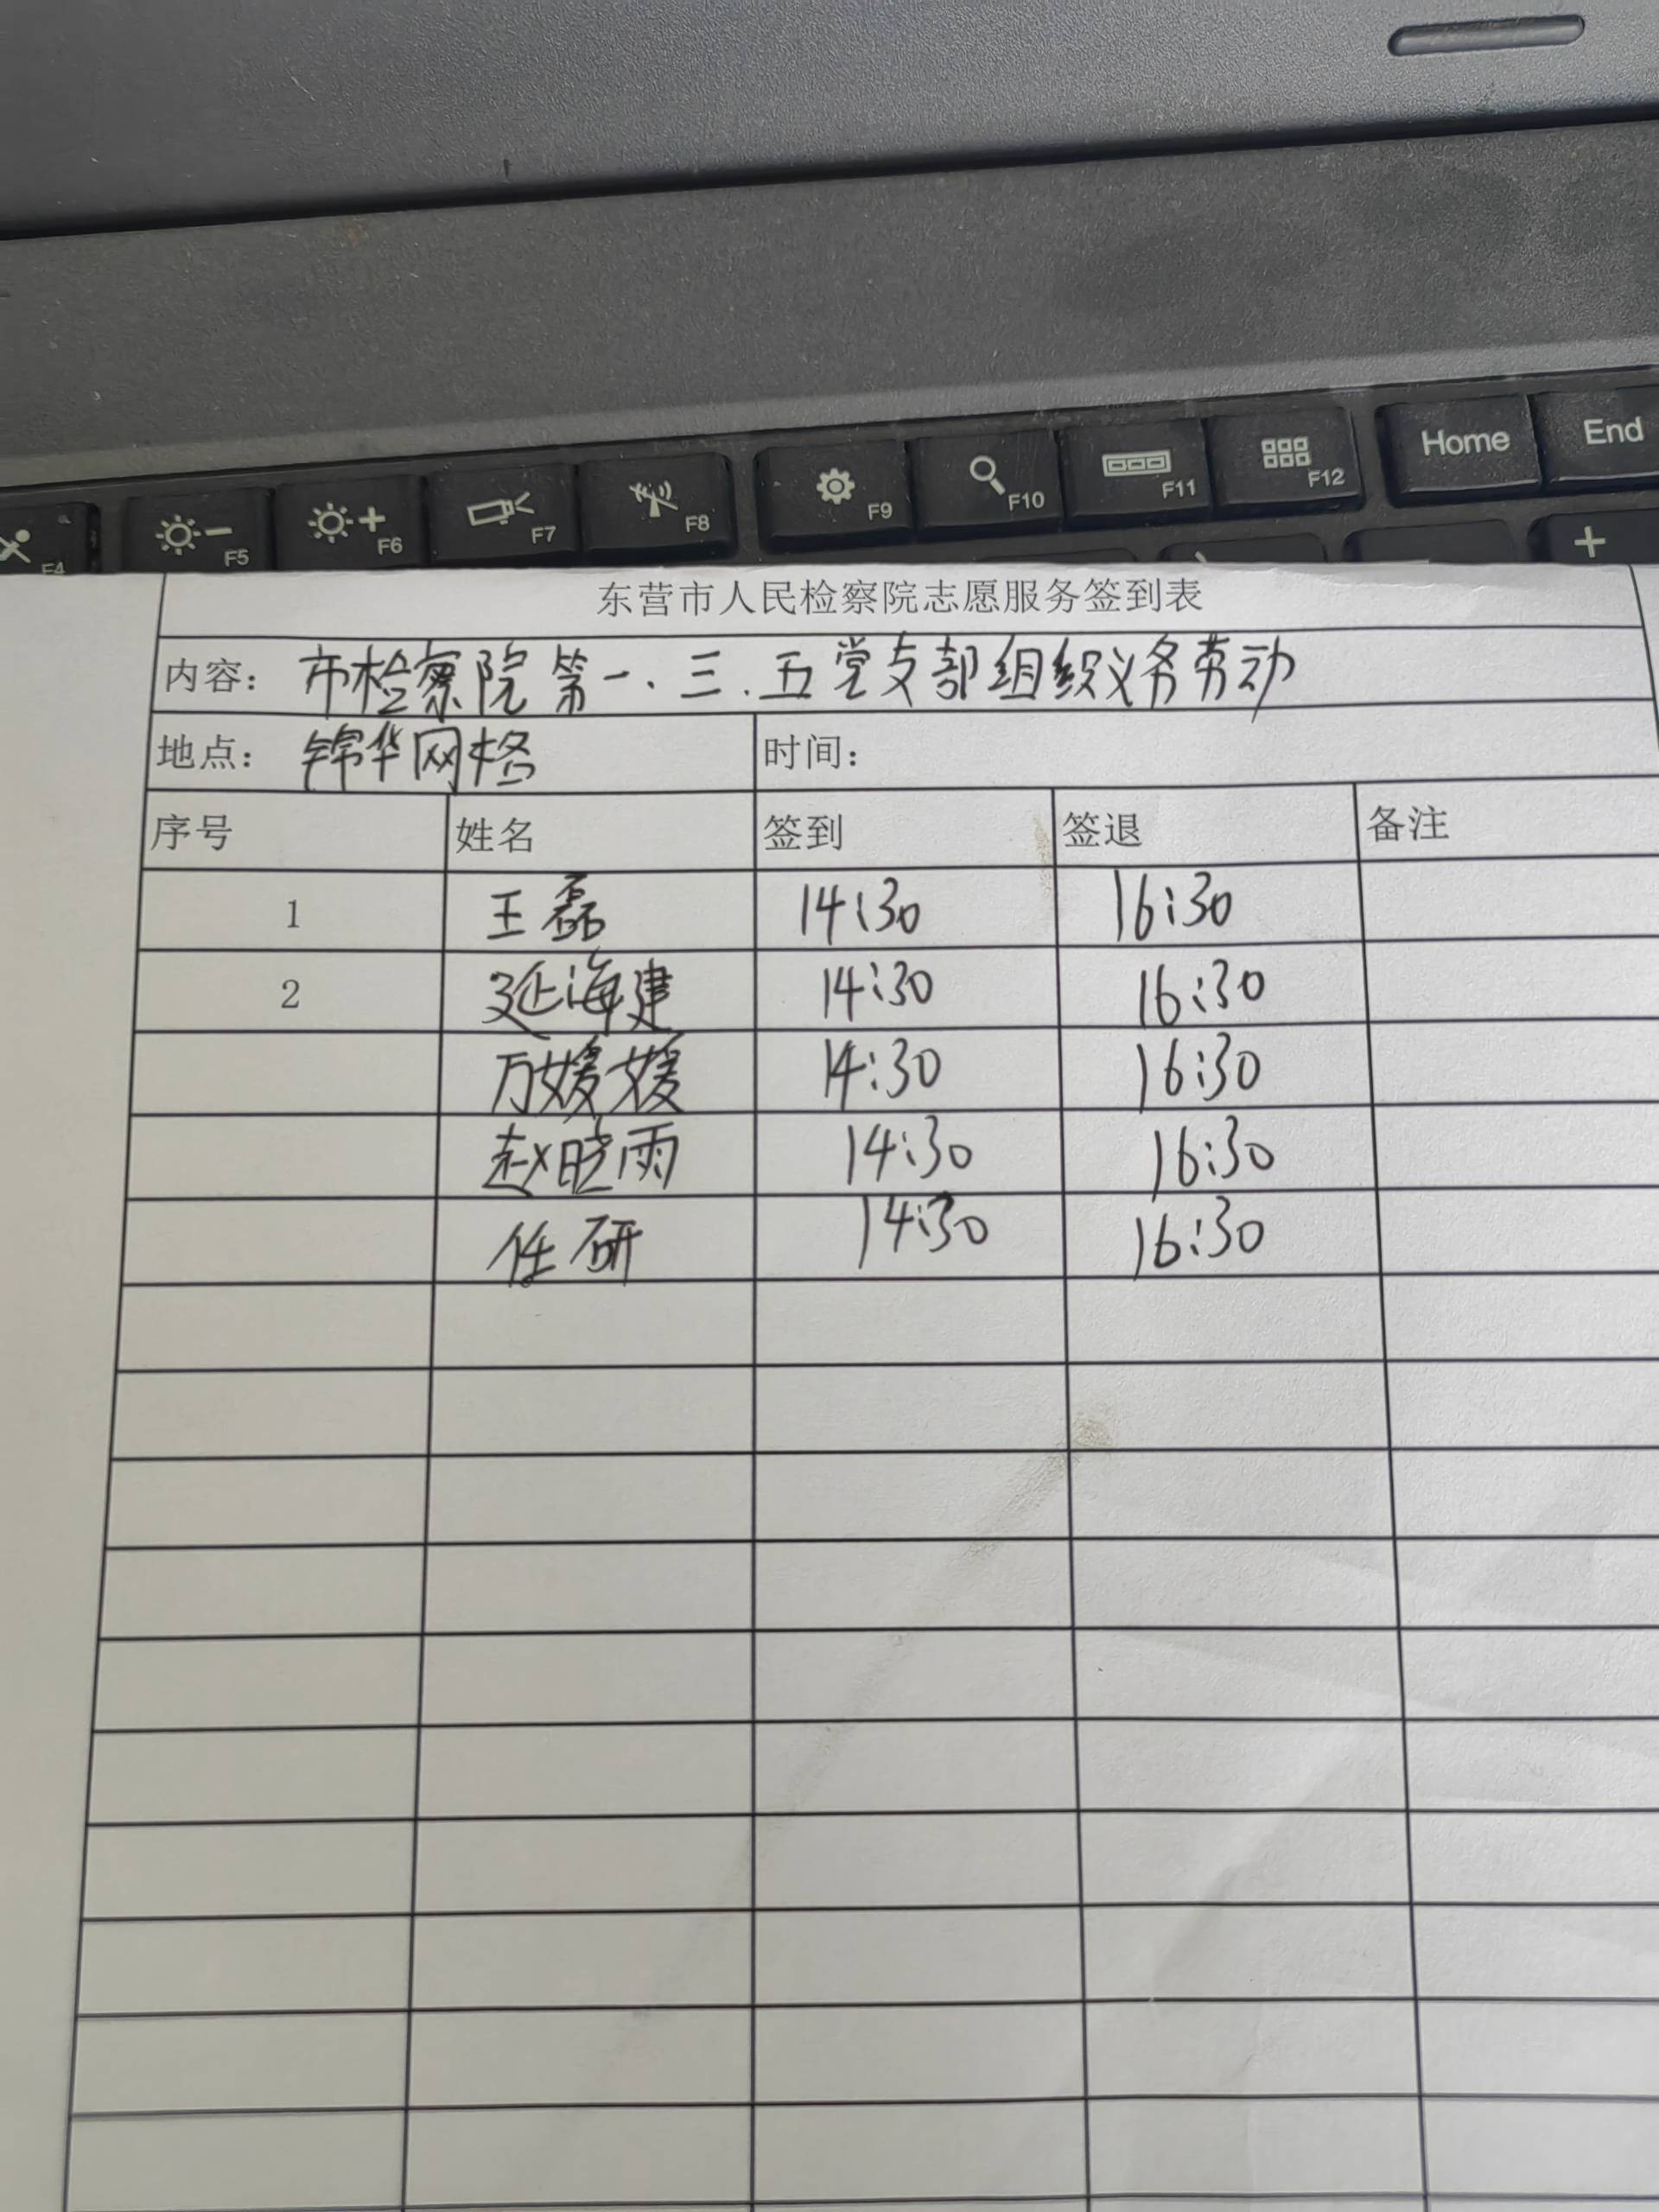 Home End
F4 F5 F6 F7 F8 F9 F10 F11 F12
+
东营市人民检察院志愿服务签到表
内容： 市检察院第一、三、五党支部组织义务劳动
地点： 锦华网格 时间：
序号 姓名 签到 签退 备注
1 王磊 14:30 16:30
2 延海建 14:30 16:30
万媛媛 14:30 16:30
赵晓雨 14:30 16:30
任研 14:30 16:30